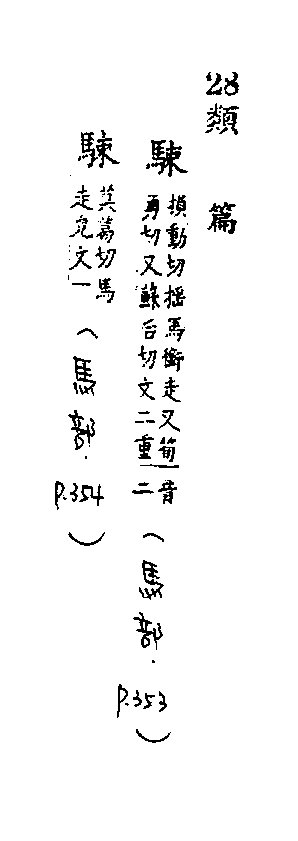 28類篇
駷 損動切搖馬銜走又筍
勇切又蘇后切文二重音二(馬部.P.353)
駷 莫葛切馬
走皃文一(馬部.P.354)